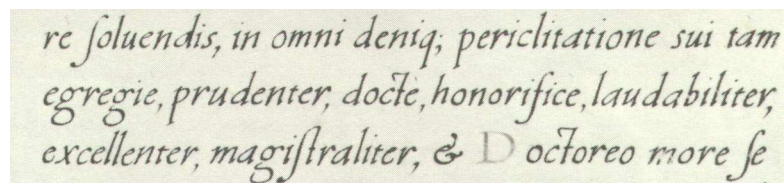 re ſoluendis, in omni deniq; periclitatione sui tam
egregie, prudenter, docte, honorifice, laudabiliter,
excellenter, magiſtraliter, & Doctoreo more ſe